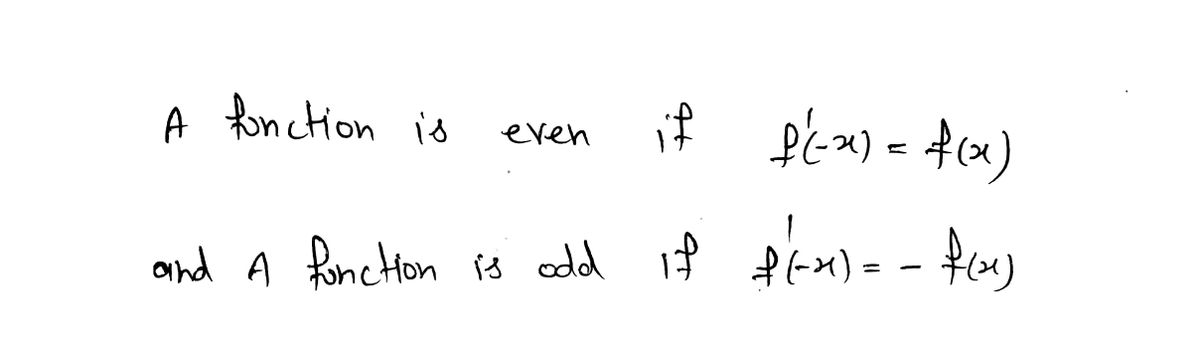 A function is even if f'(-x) = f(x)
and A function is odd if f'(-x) = - f(x)